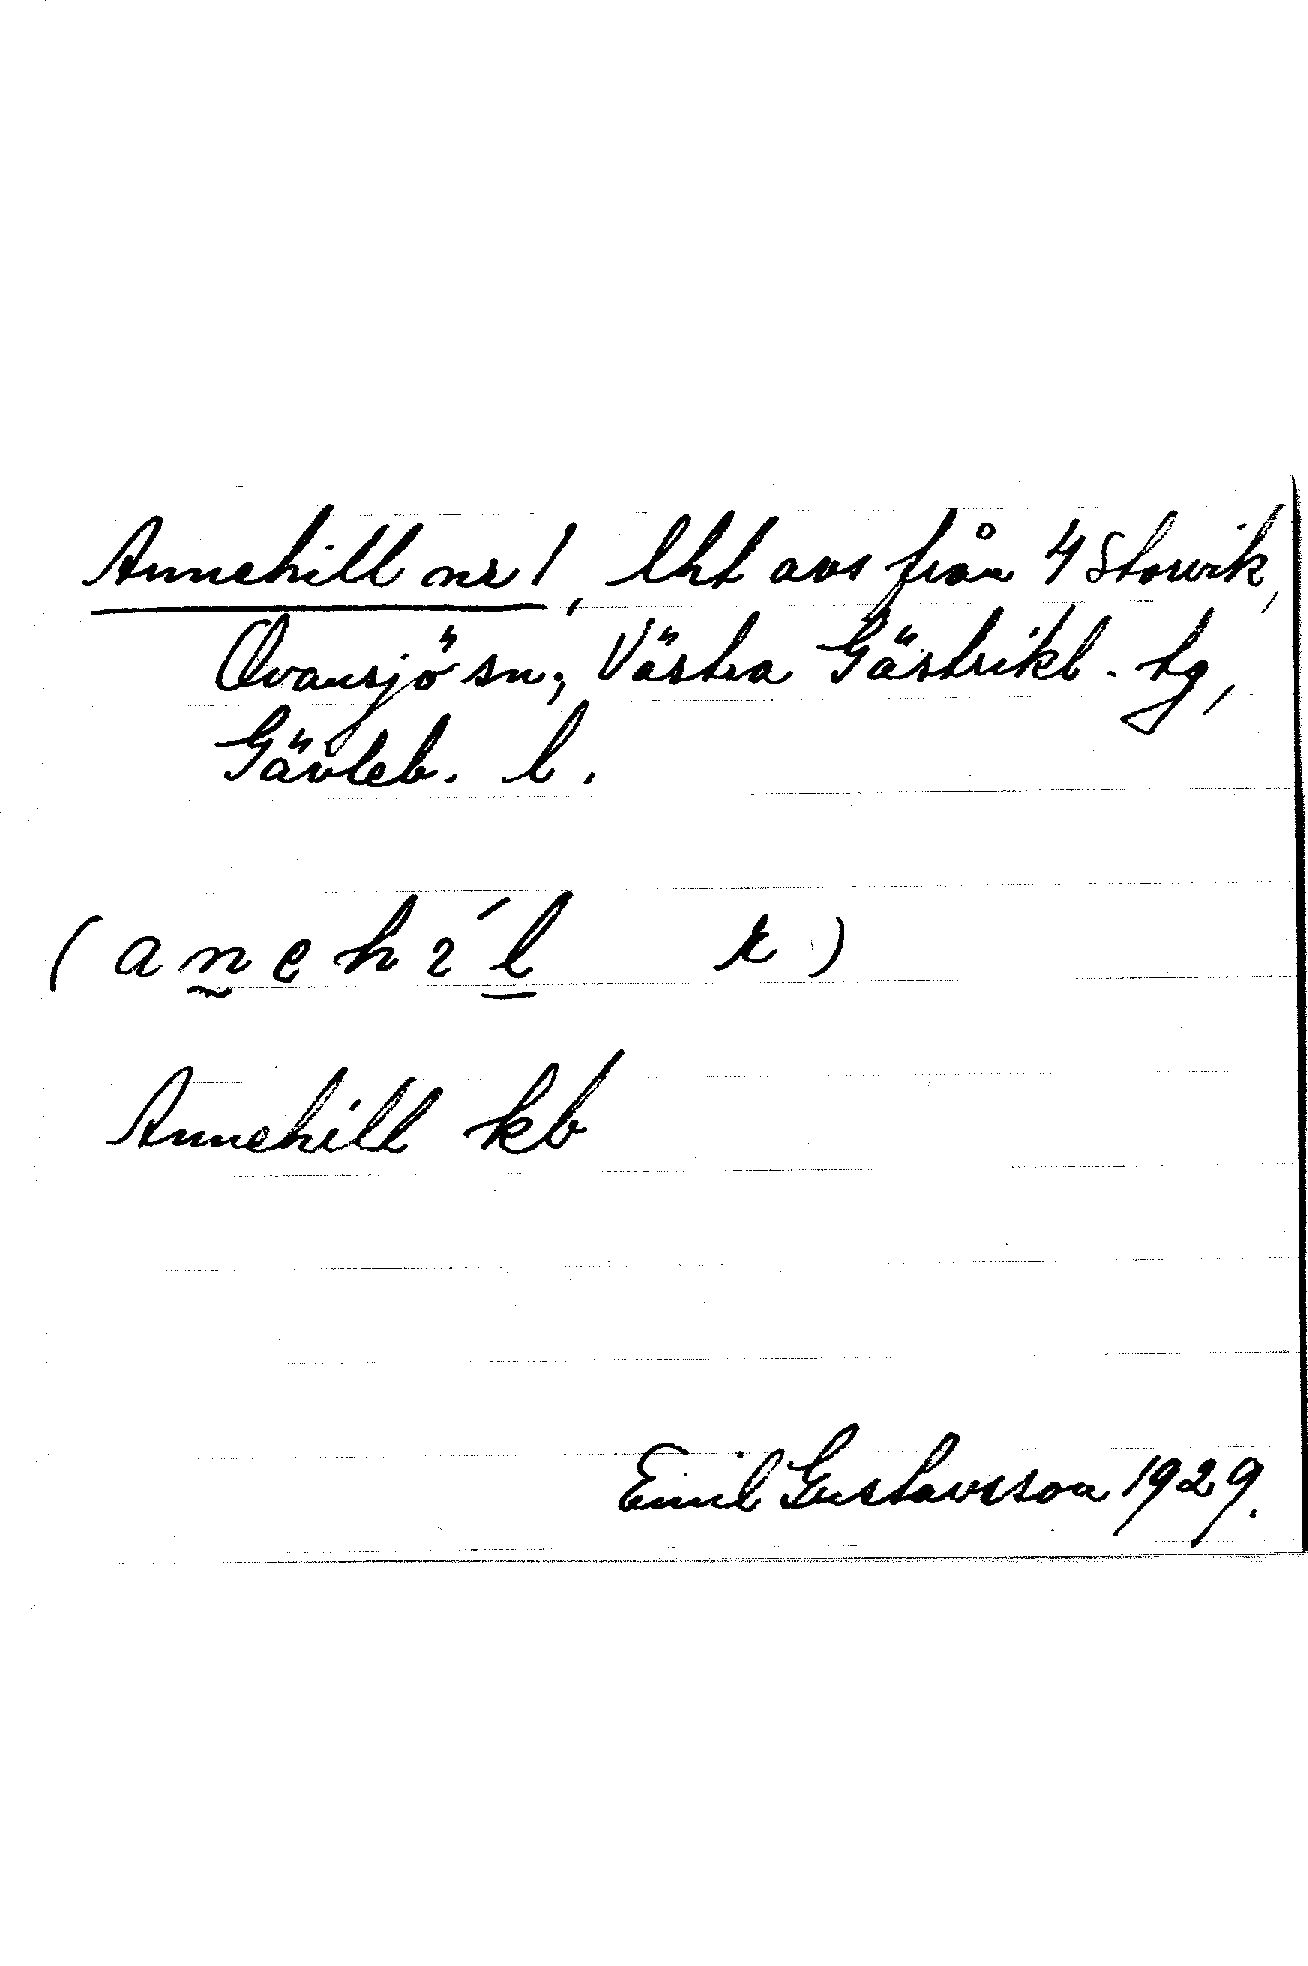 Annehill nr 1, lht avs från 4 Storvik,
Ovansjö sn, Västra Gästrikl. tg,
Gävleb. l.
(a n e h ı ́ l k)
Annehill kb
Emil Gustavsson 1929.